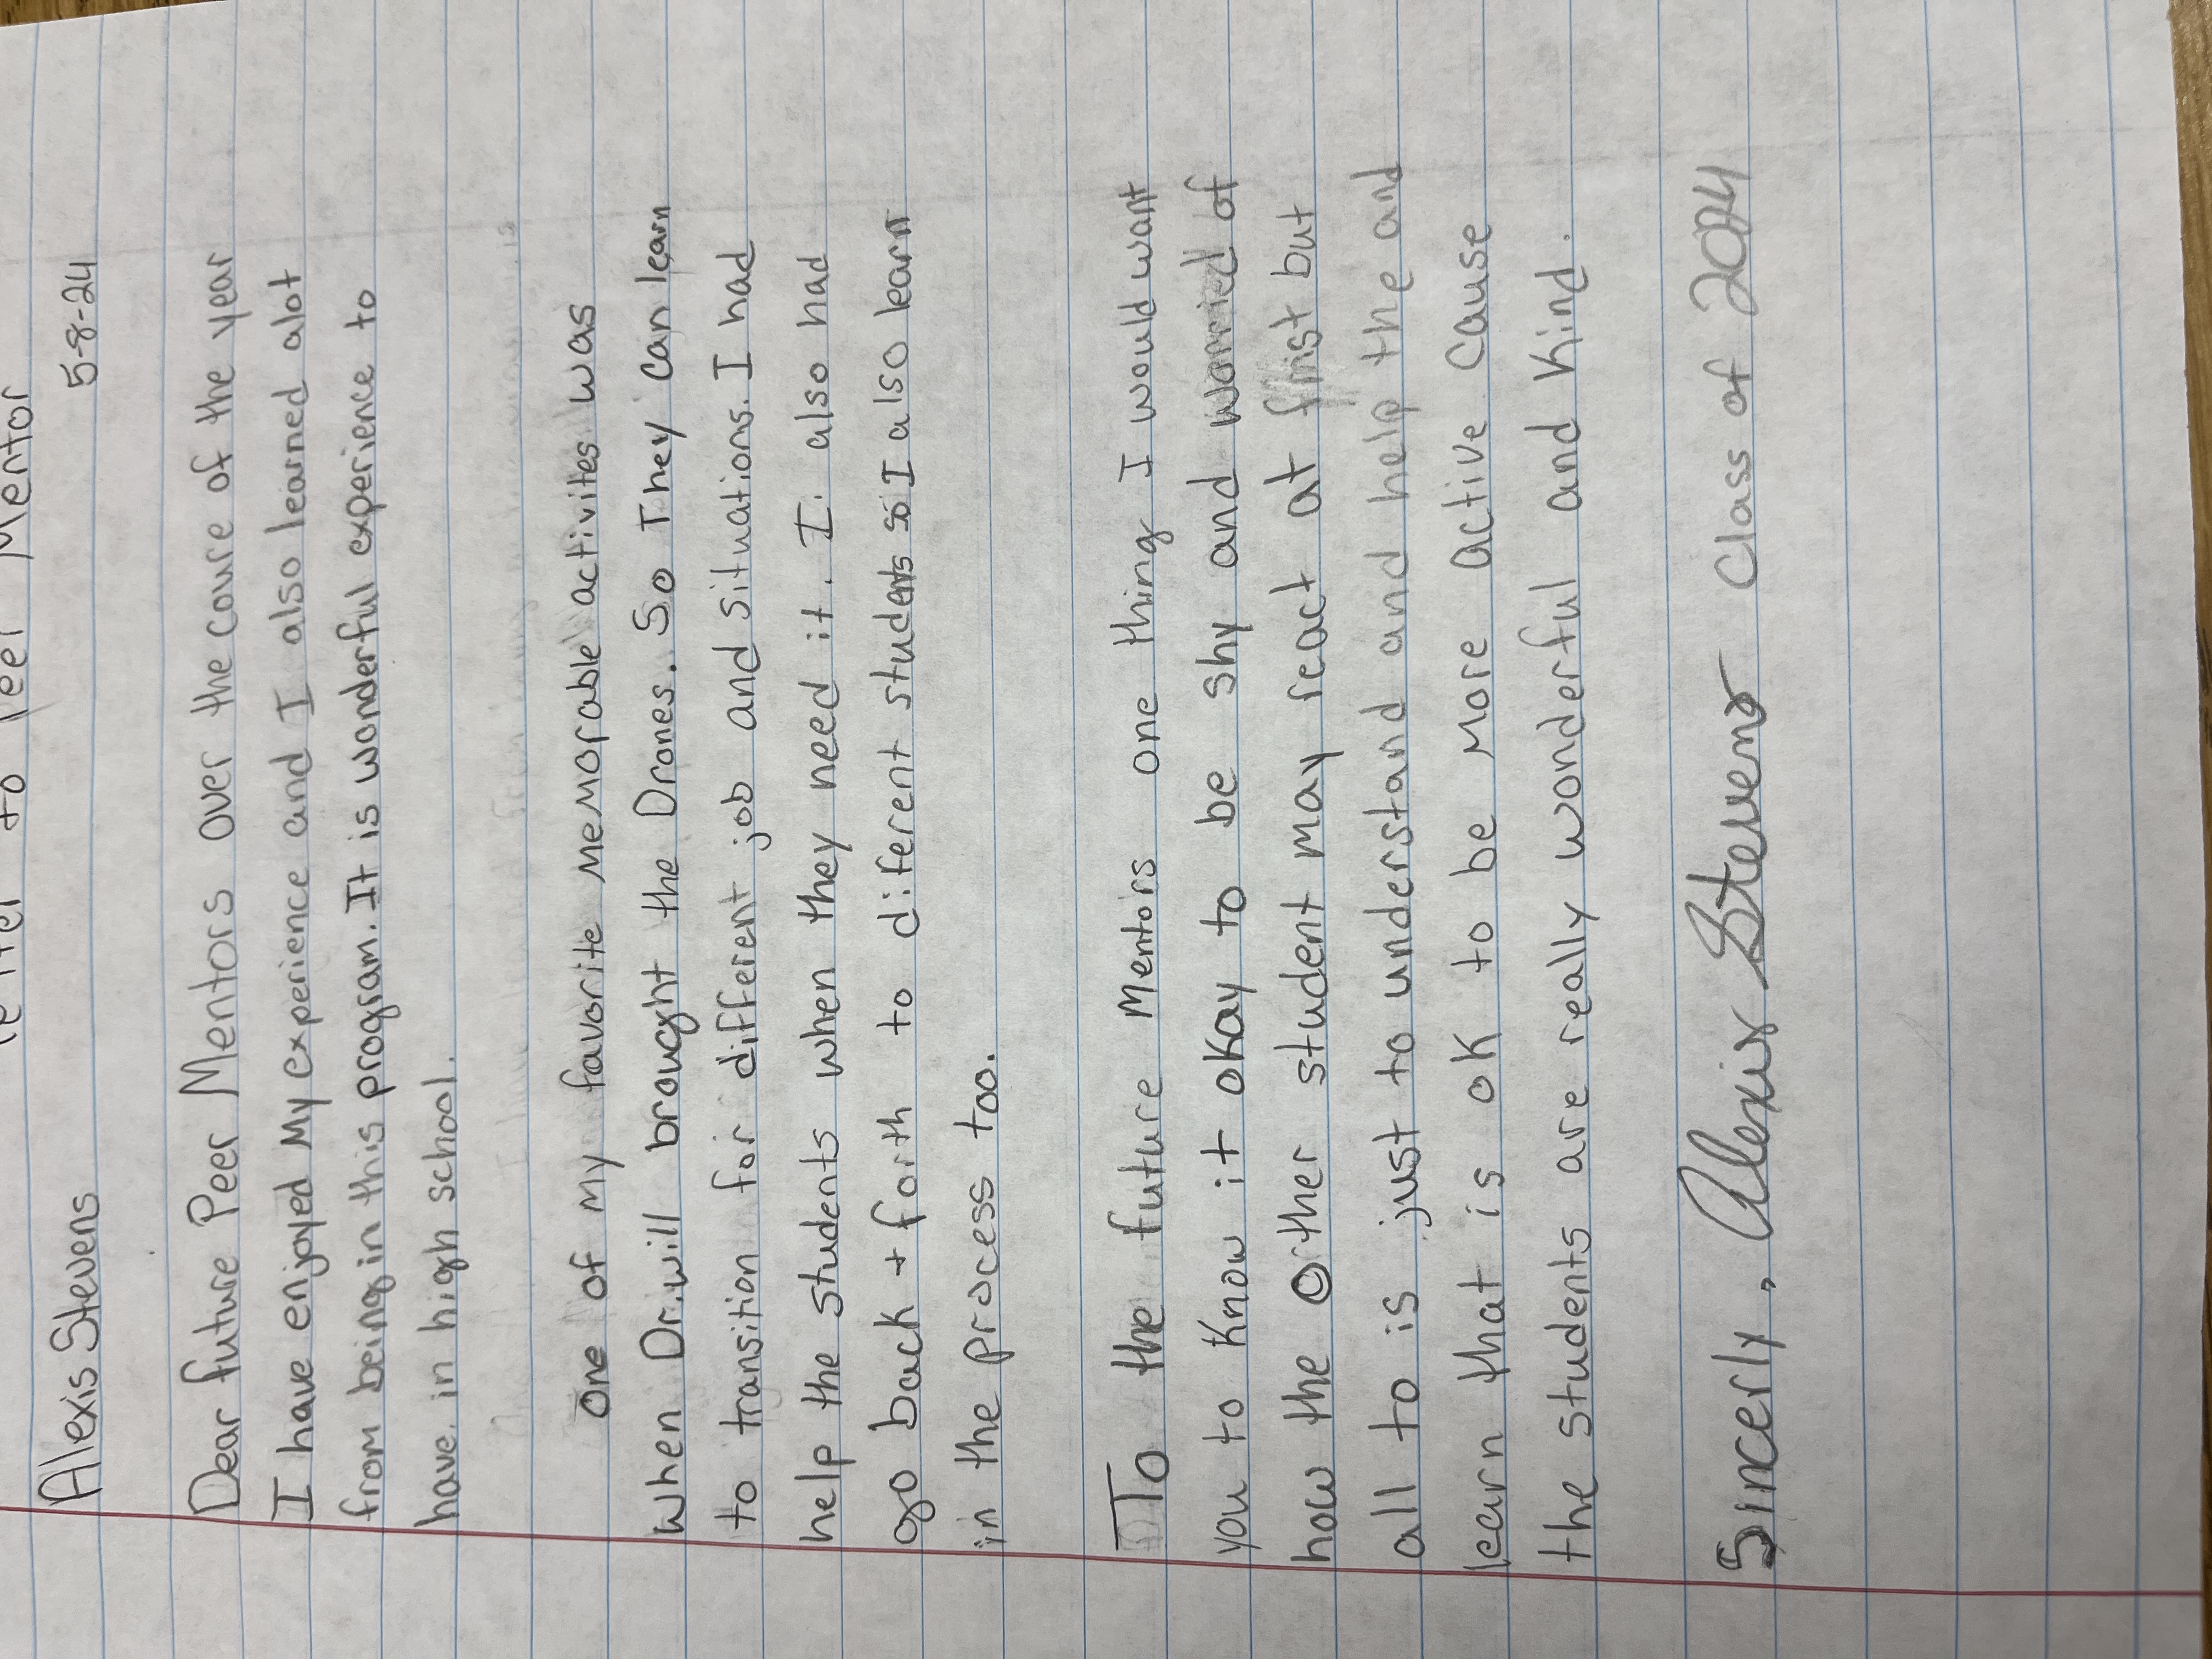 letter to peer Mentor
Alexis Stevens 5-8-24
Dear future Peer Mentors over the coure of the year
I have enjoyed My experience and I also learned alot
from being in this program. It is wonderful experience to
have in high school.
One of my favorite memorable activites was
when Dr. will brought the Drones. So They can learn
to transition for different job and situations. I had
help the students when they need it. I. also had
go back + forth to diferent students so I also learn
in the process too.
To the future Mentors one thing I would want
you to know it okay to be shy and worried of
how the orther student may react at frist but
all to is just to understand and help the and
learn that is ok to be More active cause
the students are really wonderful and kind.
Sincerly, Alexis Stevens Class of 2024